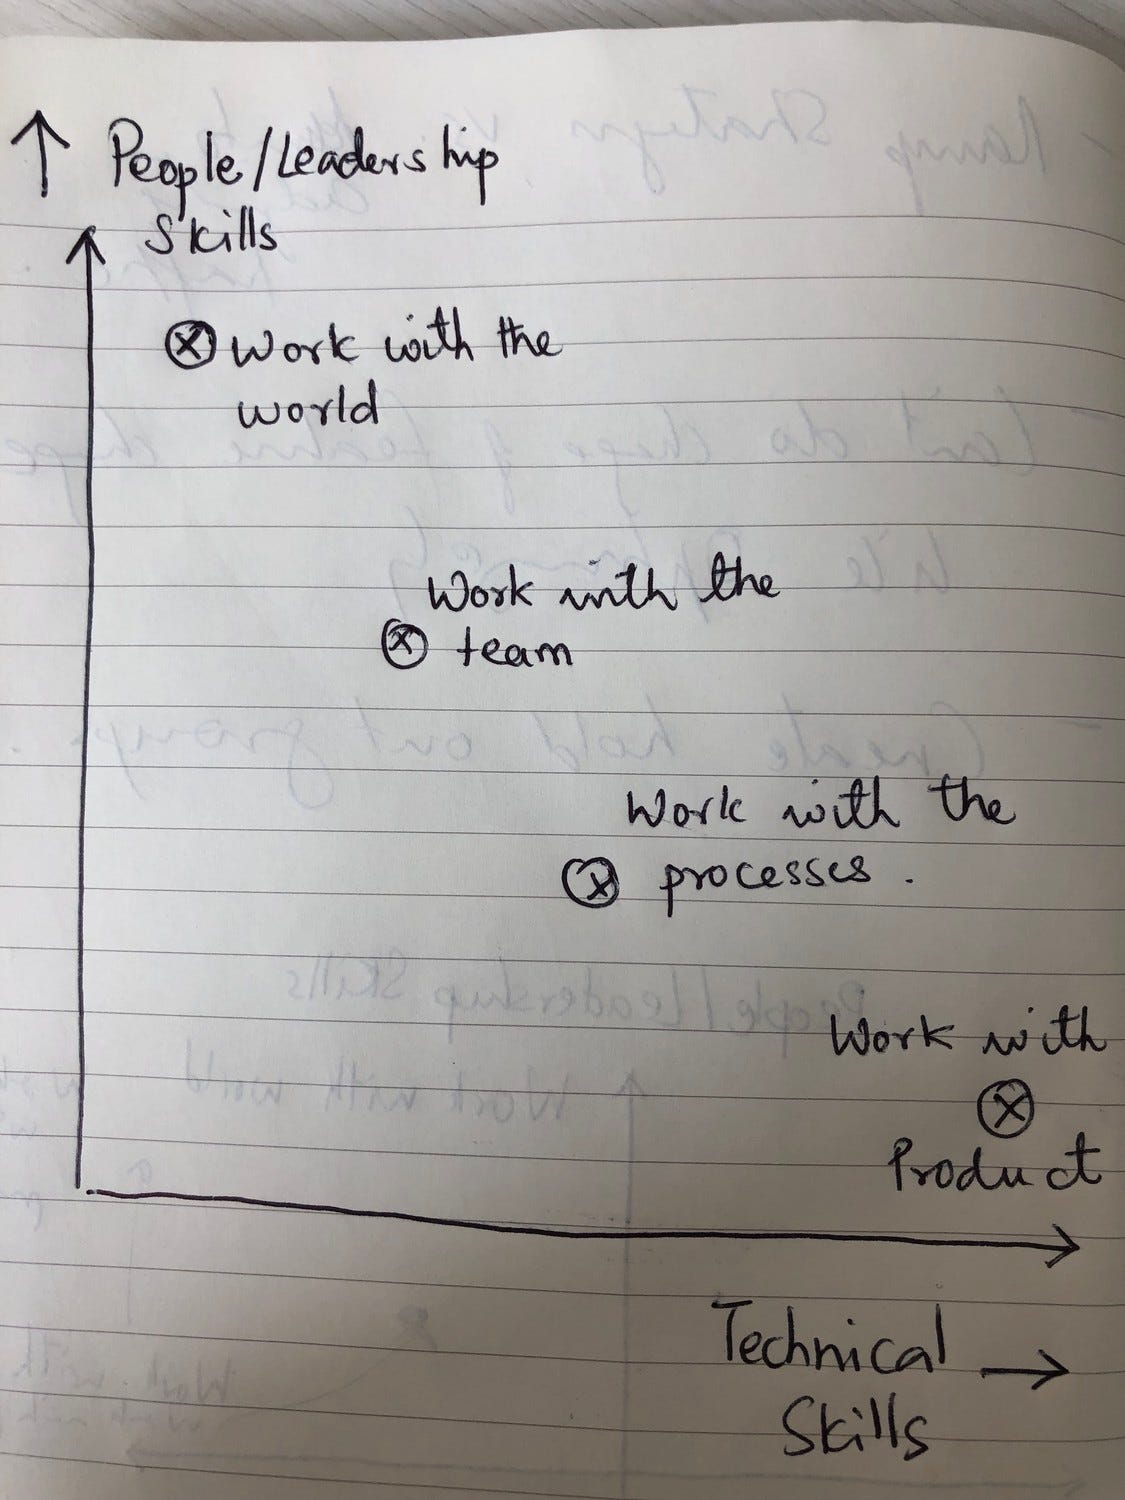 People/Leadership
Skills
Work with the
world
Work with the
team
Work with the
processes.
Work with
Product
Technical
Skills